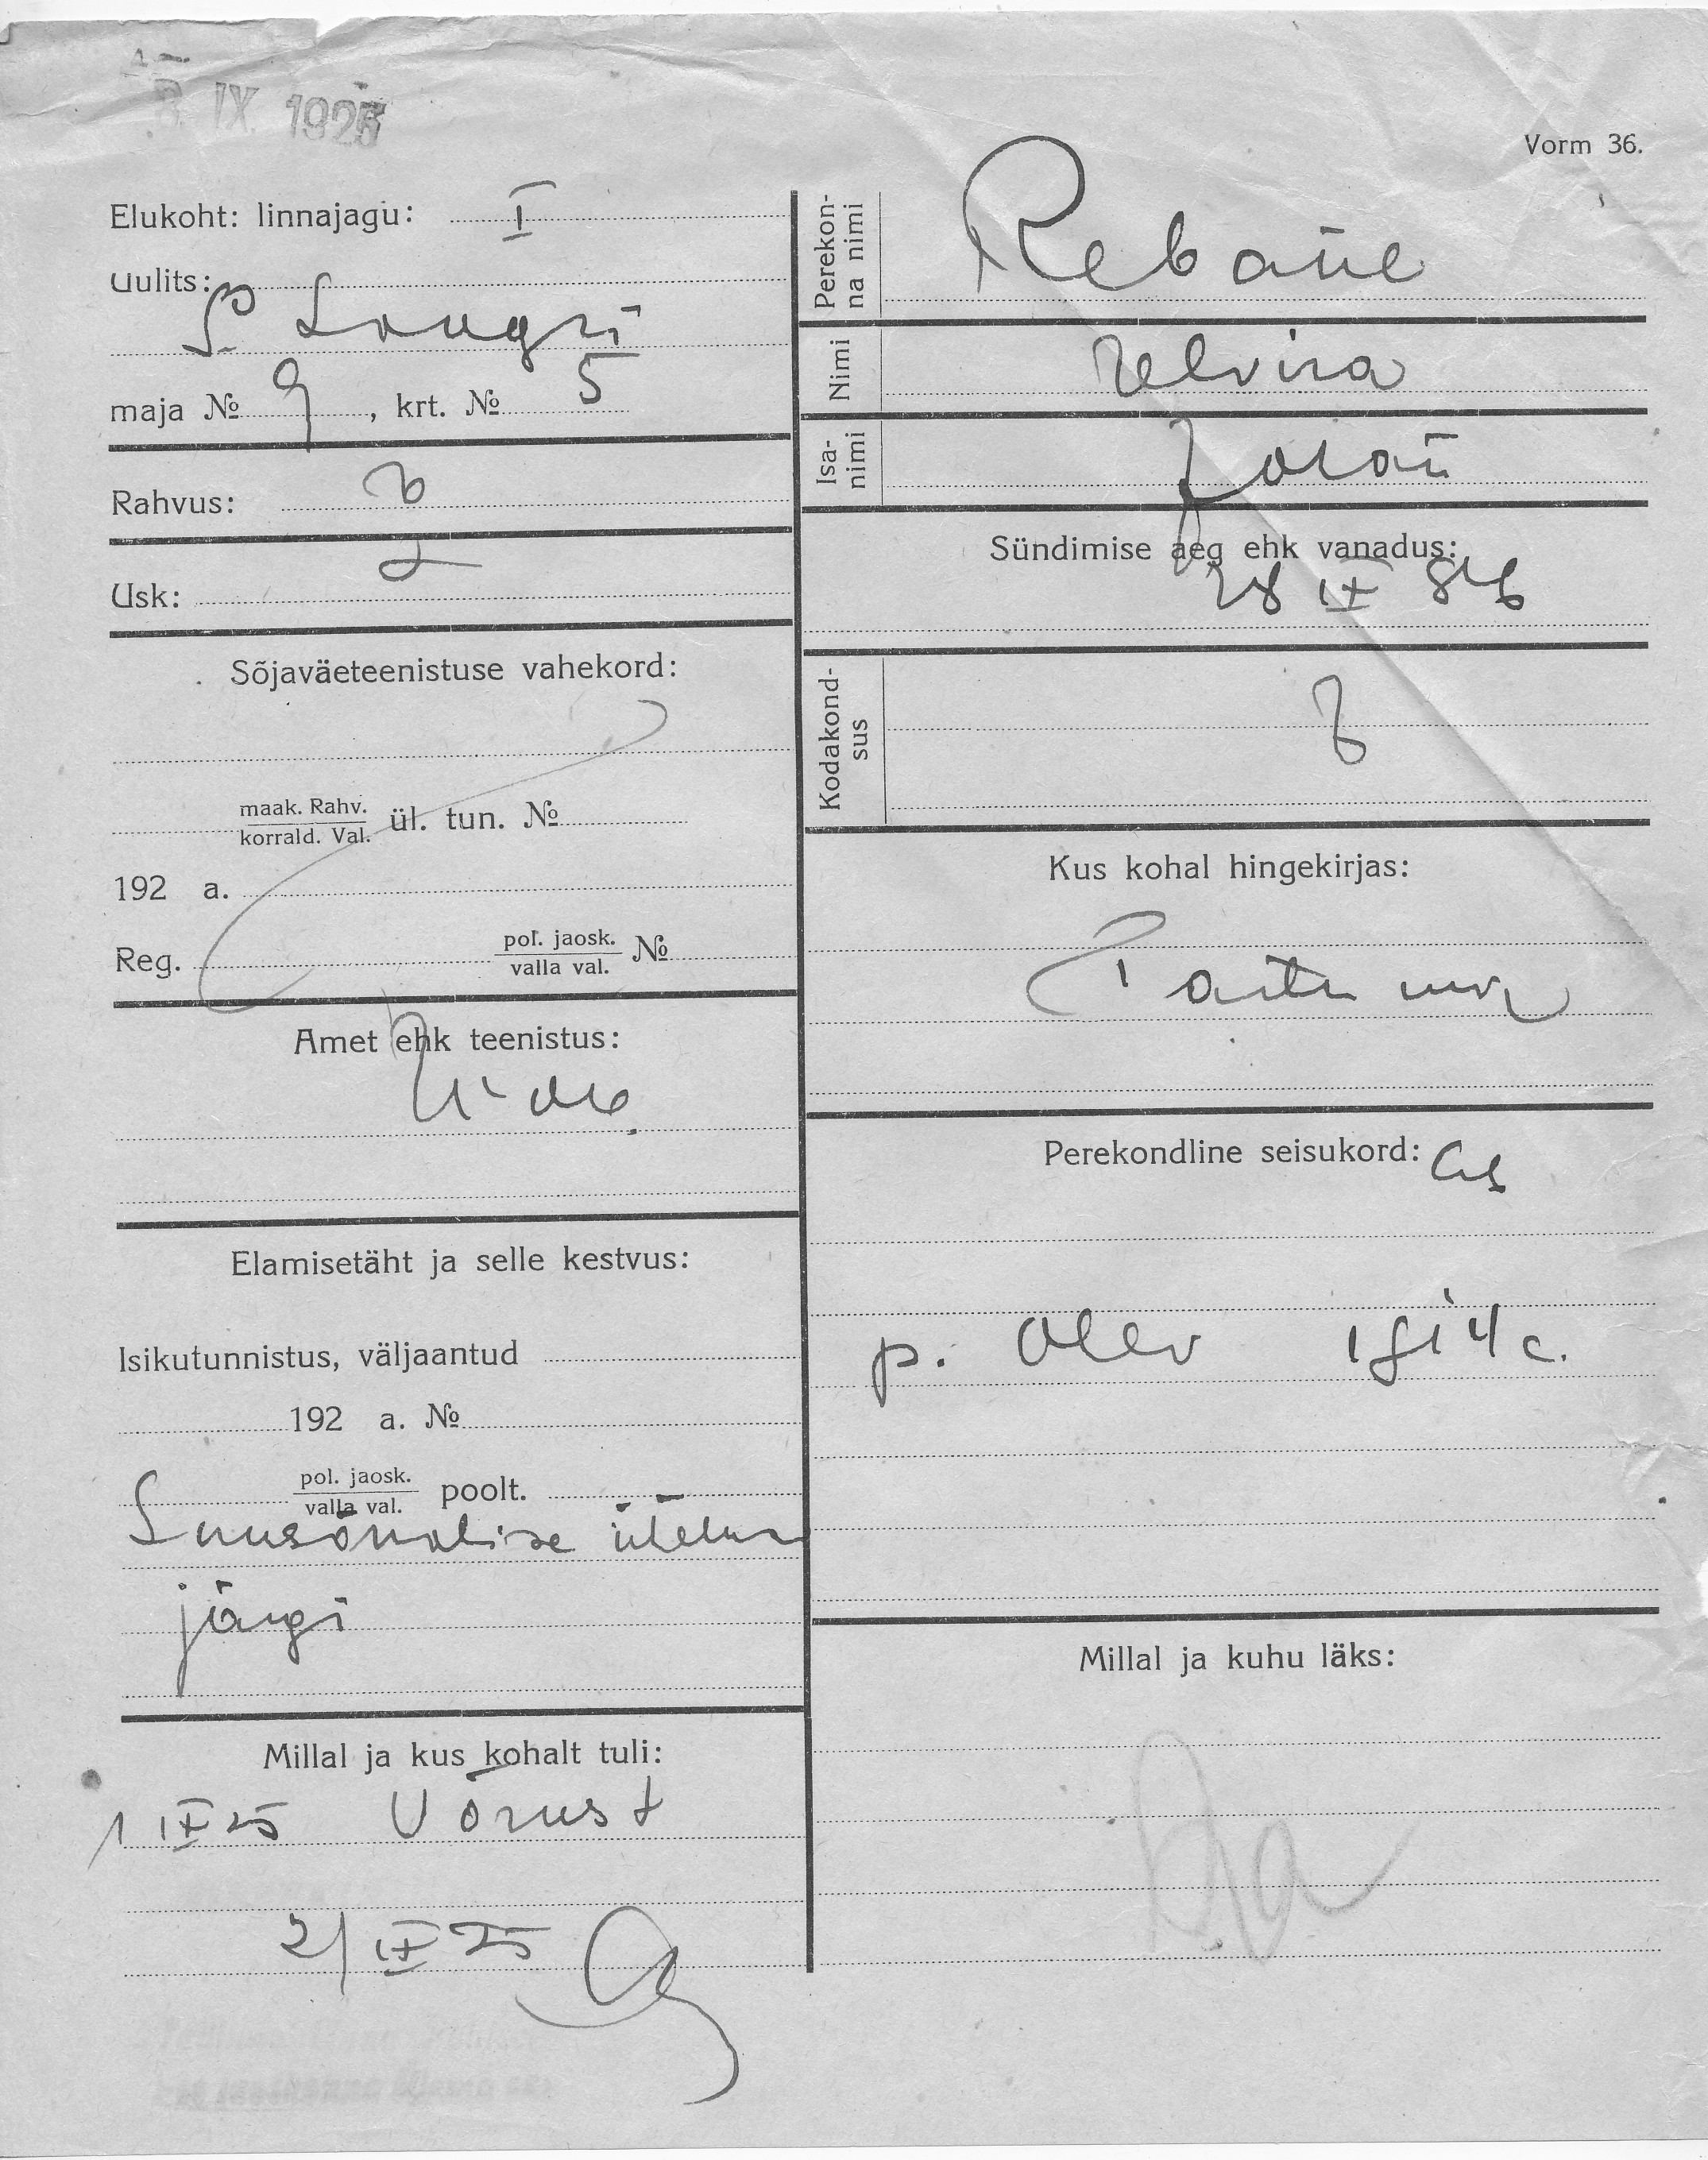 IX 1925
Vorm 36.
Elukoht: linnajagu: I
Uulits:
maja № 9, krt. № 5
Rahvus:
Usk: L
Sõjaväeteenistuse vahekord:
maak. Rahv.
korrald. Val.
ül. tun. №
192 a.
Reg. pol. jaosk.
valla val. №
Amet ehk teenistus:
Elamisetäht ja selle kestvus:
Isikutunnistus, väljaantud
192 a. №
pol. jaosk.
valla val. poolt.
Suusõnalise ütelus
järgi
Millal ja kus kohalt tuli:
1 IX 25 Võrust
2/IX 25
Perekon-
na nimi
Rebane
Nimi
Elvira
Isa-
nimi
Sündimise aeg ehk vanadus:
28 IX 86
Kodakond-
sus
Kus kohal hingekirjas:
Tartu
Perekondline seisukord:
p. Olev 1914 a.
Millal ja kuhu läks: